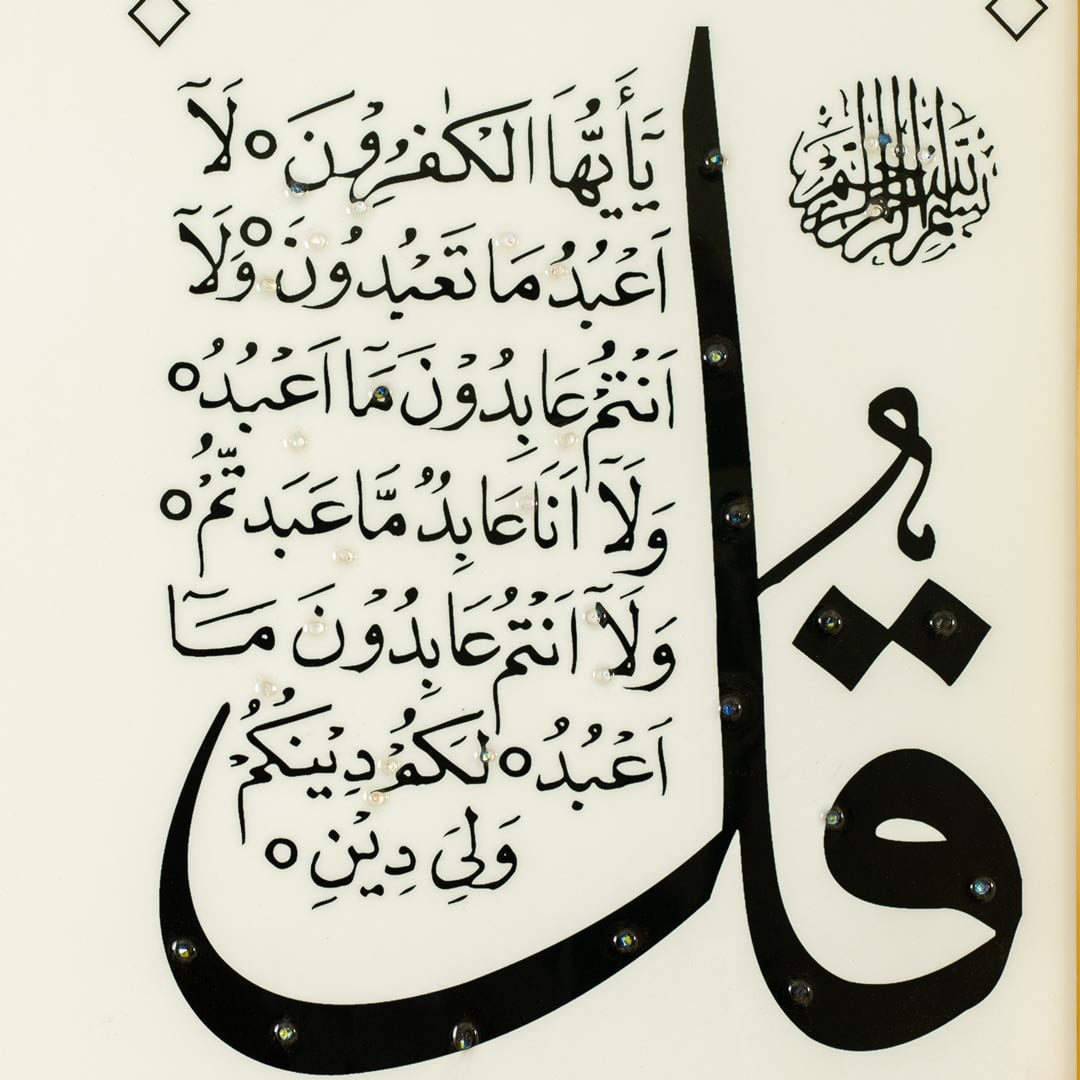 بِسْمِ اللّٰهِ الرَّحْمٰنِ الرَّحِيْمِ
قُلْ
يٰٓأَيُّهَا الْكٰفِرُوْنَ ۝ لَآ
اَعْبُدُ مَا تَعْبُدُوْنَ ۝ وَلَآ
اَنْتُمْ عَابِدُوْنَ مَآ اَعْبُدُ ۝
وَلَآ اَنَا عَابِدٌ مَّا عَبَدتُّمْ ۝
وَلَآ اَنْتُمْ عَابِدُوْنَ مَآ
اَعْبُدُ ۝ لَكُمْ دِيْنُكُمْ
وَلِيَ دِيْنِ ۝